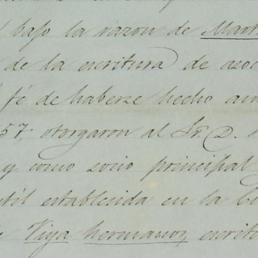 bajo la razon de Mart
de la escritura de asoc
fé de haberse hecho am
57, otorgaron al Sr. D.
y como socio principal
til establecida en la
Viya hermanos, escrito